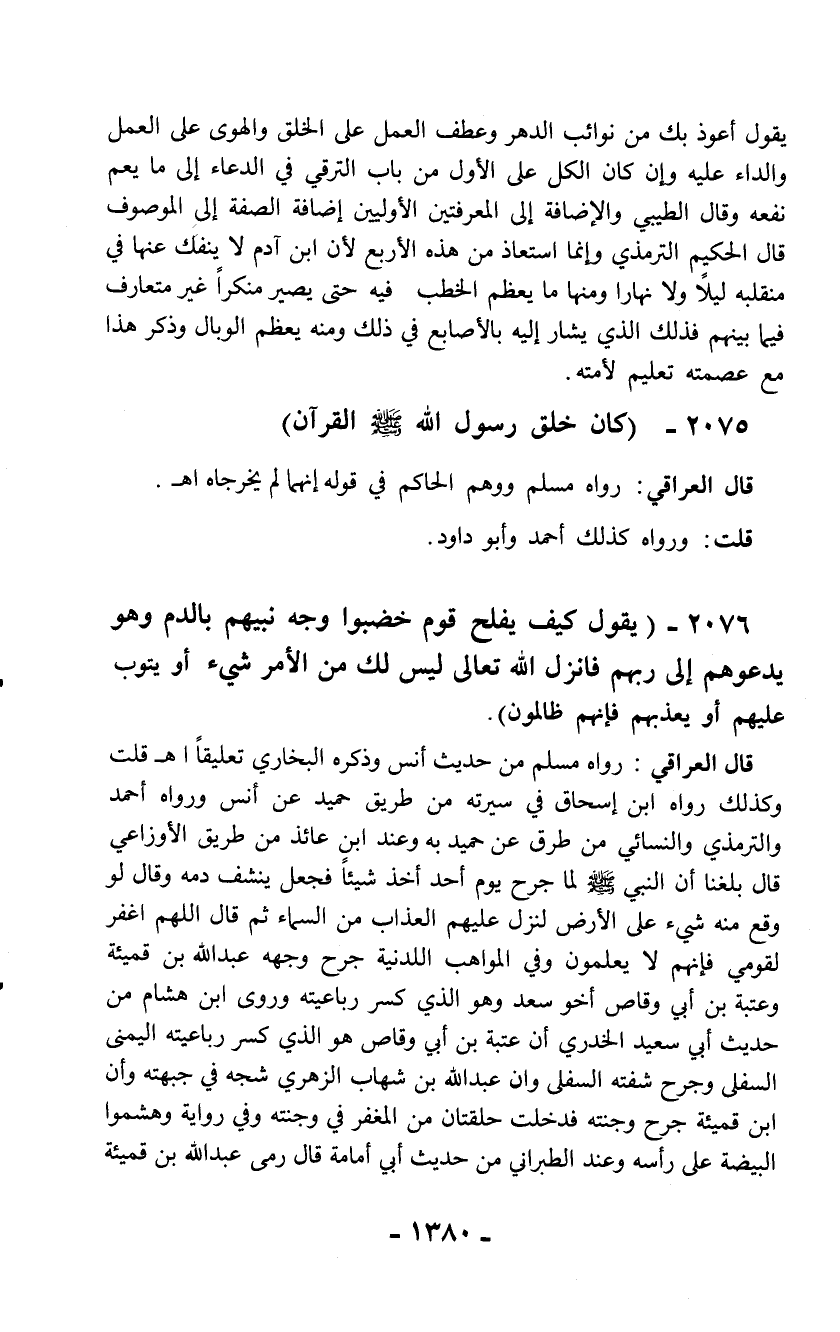 يقول أعوذ بك من نوائب الدهر وعطف العمل على الخلق والهوى على العمل
والداء عليه وإن كان الكل على الأول من باب الترقي في الدعاء إلى ما يعم
نفعه وقال الطيبي والإضافة إلى المعرفتين الأوليين إضافة الصفة إلى الموصوف
قال الحكيم الترمذي وإنما استعاذ من هذه الأربع لأن ابن آدم لا ينفك عنها في
منقلبه ليلاً ولا نهارا ومنها ما يعظم الخطب فيه حتى يصير منكراً غير متعارف
فيما بينهم فذلك الذي يشار إليه بالأصابع في ذلك ومنه يعظم الوبال وذكر هذا
مع عصمته تعليم لأمته.
٢٠٧٥ - (كان خلق رسول الله ﷺ القرآن)
قال العراقي: رواه مسلم ووهم الحاكم في قوله إنهما لم يخرجاه اهـ .
قلت: ورواه كذلك أحمد وأبو داود.
٢٠٧٦ - ( يقول كيف يفلح قوم خضبوا وجه نبيهم بالدم وهو
يدعوهم إلى ربهم فانزل الله تعالى ليس لك من الأمر شيء أو يتوب
عليهم أو يعذبهم فإنهم ظالمون).
قال العراقي : رواه مسلم من حديث أنس وذكره البخاري تعليقاً ا هـ قلت
وكذلك رواه ابن إسحاق في سيرته من طريق حميد عن أنس ورواه أحمد
والترمذي والنسائي من طرق عن حميد به وعند ابن عائذ من طريق الأوزاعي
قال بلغنا أن النبي ﷺ لما جرح يوم أحد أخذ شيئاً فجعل ينشف دمه وقال لو
وقع منه شيء على الأرض لنزل عليهم العذاب من السماء ثم قال اللهم اغفر
لقومي فإنهم لا يعلمون وفي المواهب اللدنية جرح وجهه عبدالله بن قميئة
وعتبة بن أبي وقاص أخو سعد وهو الذي كسر رباعيته وروى ابن هشام من
حديث أبي سعيد الخدري أن عتبة بن أبي وقاص هو الذي كسر رباعيته اليمنى
السفلى وجرح شفته السفلى وان عبدالله بن شهاب الزهري شجه في جبهته وأن
ابن قميئة جرح وجنته فدخلت حلقتان من المغفر في وجنته وفي رواية وهشموا
البيضة على رأسه وعند الطبراني من حديث أبي أمامة قال رمى عبدالله بن قميئة
- ١٣٨٠ -